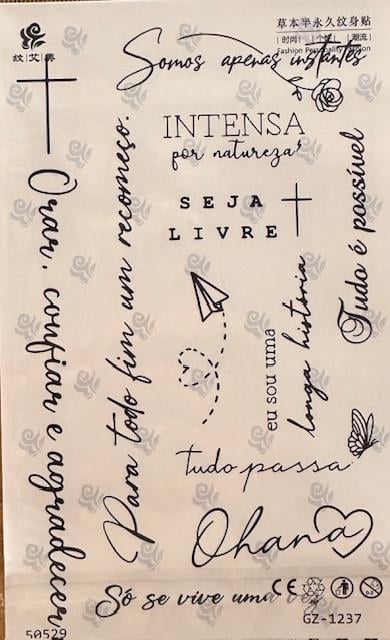 纹|艾|美
草本半永久纹身贴
|时尚|个性|潮流|
Fashion Personality Fashion
Somos apenas instantes
INTENSA
por natureza
SEJA
LIVRE
Tudo é possível
Orar, confiar e agradecer
Para todo fim um recomeço.
eu sou uma
longa história
tudo passa
Ohana
Só se vive uma vez
CE
50529
GZ-1237